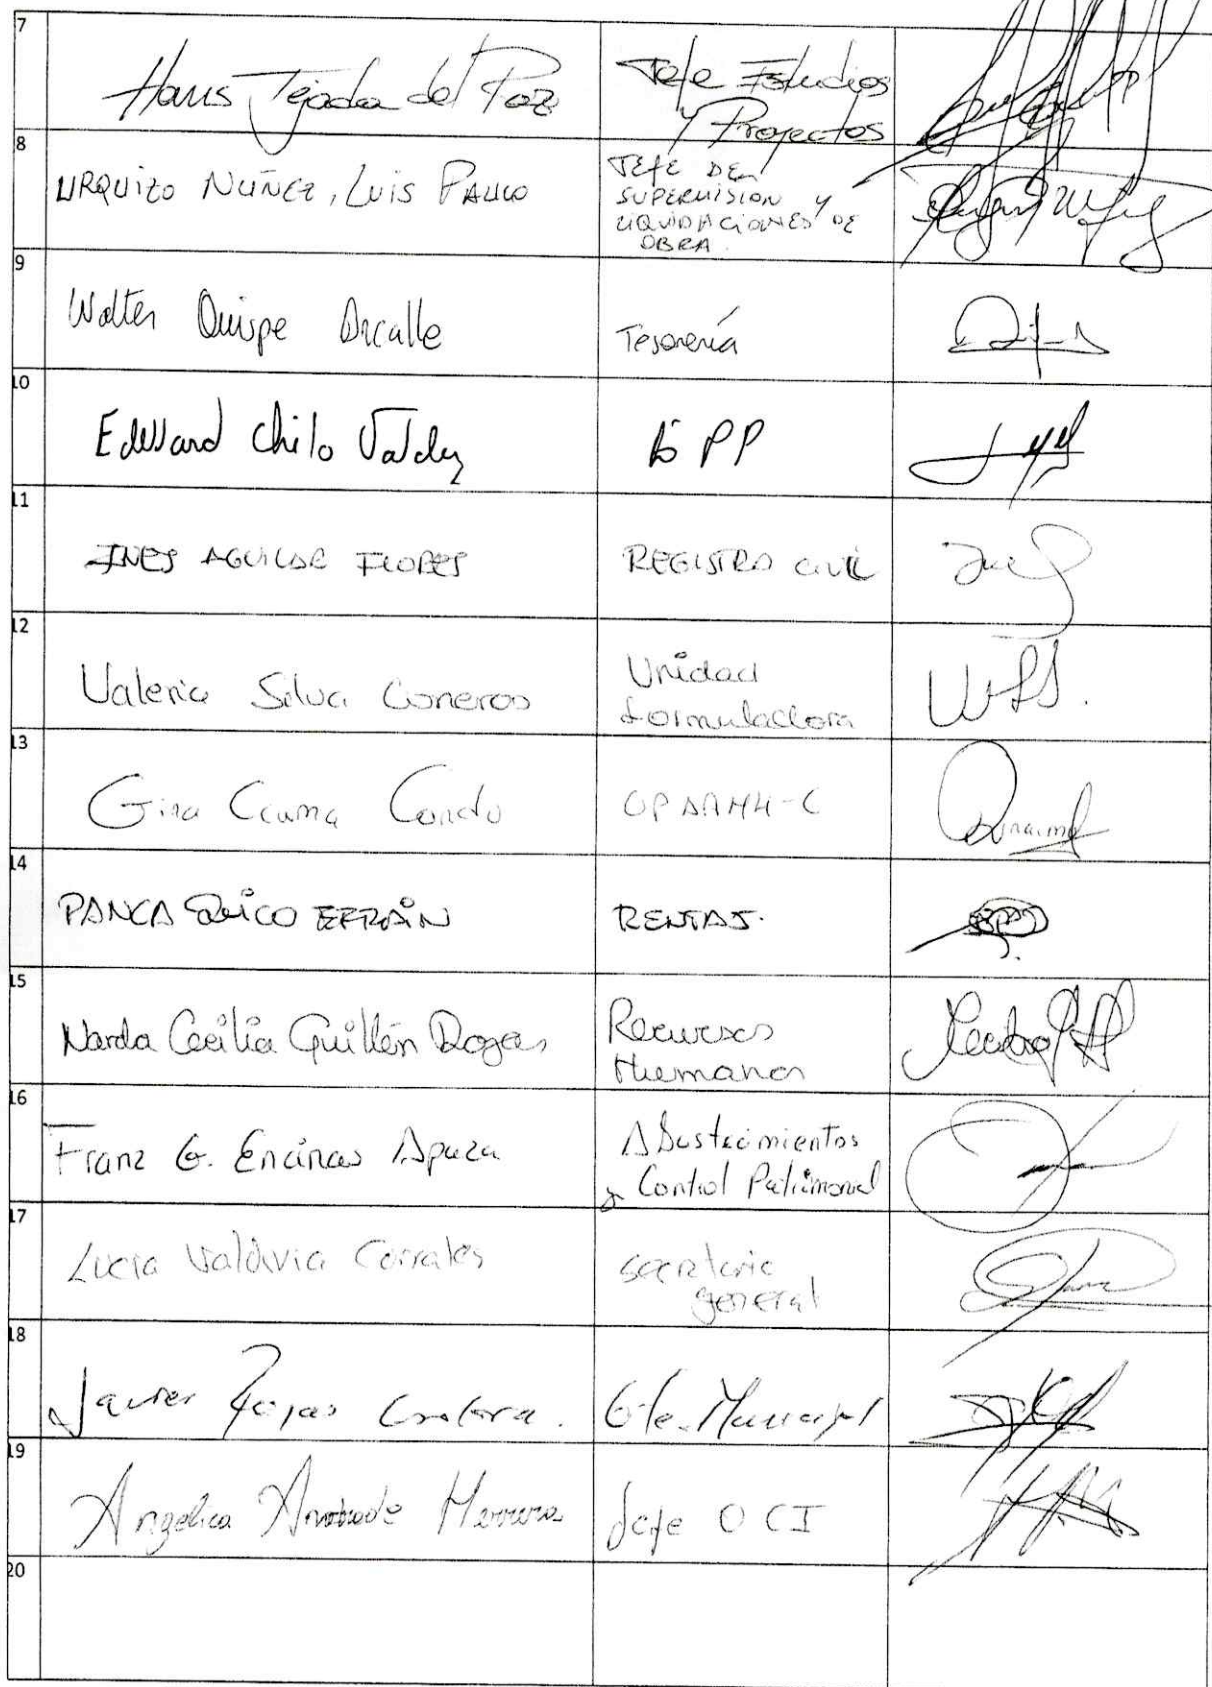 7
Hans Tejada del Poz
Jefe Estudios
y Proyectos
8
URQUIZO NUÑEZ, LUIS PAULO
JEFE DE
SUPERVISION Y
LIQUIDACIONES DE
OBRA.
9
Walter Quispe Arcalle
Tesorería
10
Edward Chilo Valdez
PP
11
INES AGUILAR FLORES
REGISTRO CIVIL
12
Valeria Silva Cisneros
Unidad
formuladora
13
Gina Ccama Condo
14
PANCA QUICO EFRAÍN
RENTAS.
15
Narda Cecilia Guillén Rojas
Recursos
Humanos
16
Franz G. Encinas Apaza
Abastecimientos
y Control Patrimonial
17
Lucia Valdivia Corrales
secretaria
general
18
Javier Rojas
Gte. Municipal
19
Angelica Andrade Herrera
Jefe OCI
20